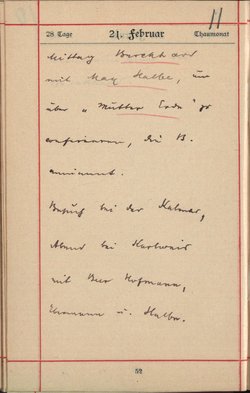 11
28 Tage 21. Februar Thaumonat
Mittag Burckhard
mit Max Halbe, um
über „Mutter Erde" zu
conferieren, die B.
annimmt.
Besuch bei der Kalmar,
Abend bei Karlweis
mit Beer Hofmann,
Ehemann u. Halbe.
52